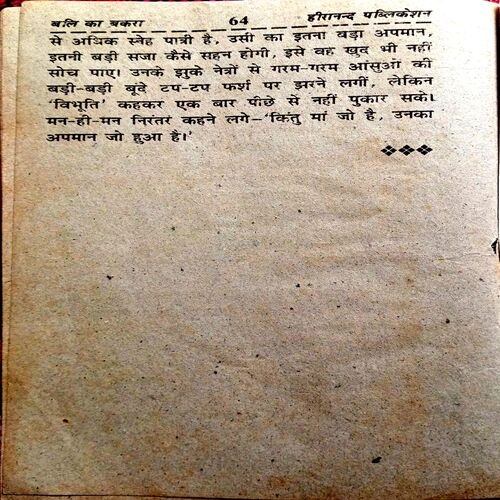 बलि का बकरा 64 हीरानन्द पब्लिकेशन
से अधिक स्नेह पात्री है, उसी का इतना बड़ा अपमान,
इतनी बड़ी सजा कैसे सहन होगी, इसे वह खुद भी नहीं
सोच पाए। उनके झुके नेत्रों से गरम-गरम आंसुओं की
बड़ी-बड़ी बूंदे टप-टप फर्श पर झरने लगीं, लेकिन
'विभूति' कहकर एक बार पीछे से नहीं पुकार सके।
मन-ही-मन निरंतर कहने लगे–'किंतु मां जो है, उनका
अपमान जो हुआ है।'